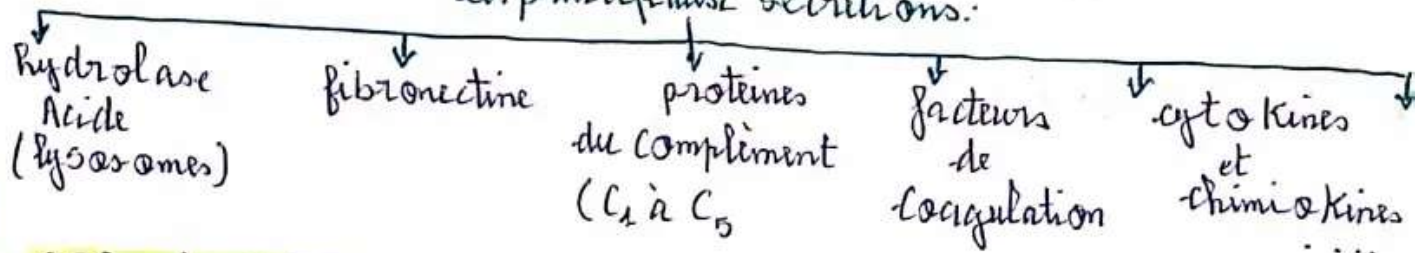 sécrétions:
hydrolase
Acide
(lysosomes)
fibronectine
protéines
du complèment
(C1 à C5
facteurs
de
coagulation
cytokines
et
chimiokines